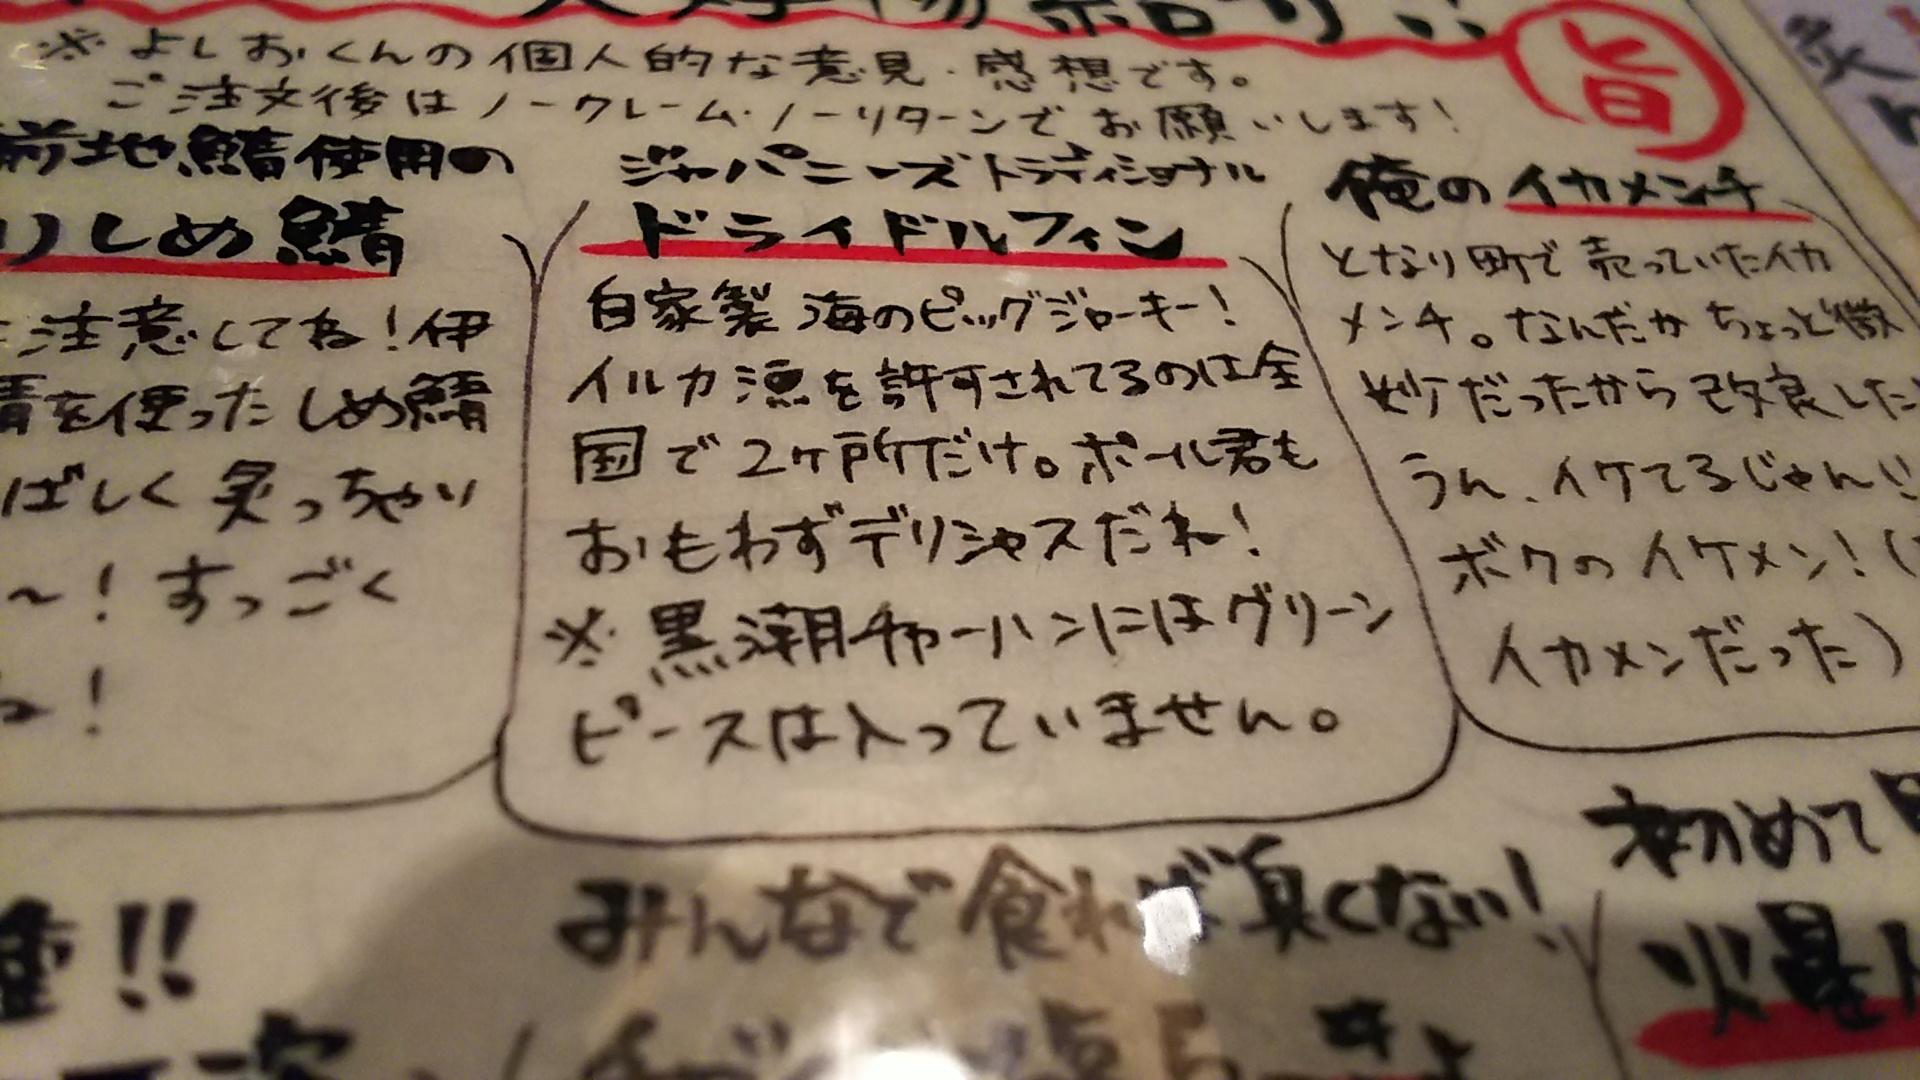 ※よしおくんの個人的な意見・感想です。
ご注文後はノークレーム・ノーリターンでお願いします!
旨
前地鯖使用の
りしめ鯖
注意してね!伊
鯖を使ったしめ鯖
ばしく炙っちゃい
〜!すっごく
ね!
ジャパニーズトラディショナル
ドライドルフィン
自家製海のビッグジャーキー!
イルカ漁を許可されてるのは全
国で2ヶ所だけ。ポール君も
おもわずデリシャスだわ!
※黒潮チャーハンにはグリーン
ピースは入っていません。
俺のイカメンチ
となり町で売っていたイカ
メンチ。なんだかちょっと微
妙だったから改良した
うん、イケてるじゃん!!
ボクのイケメン!(
イカメンだった)
!!
みんなで食れば臭くない!
初めて
火暴